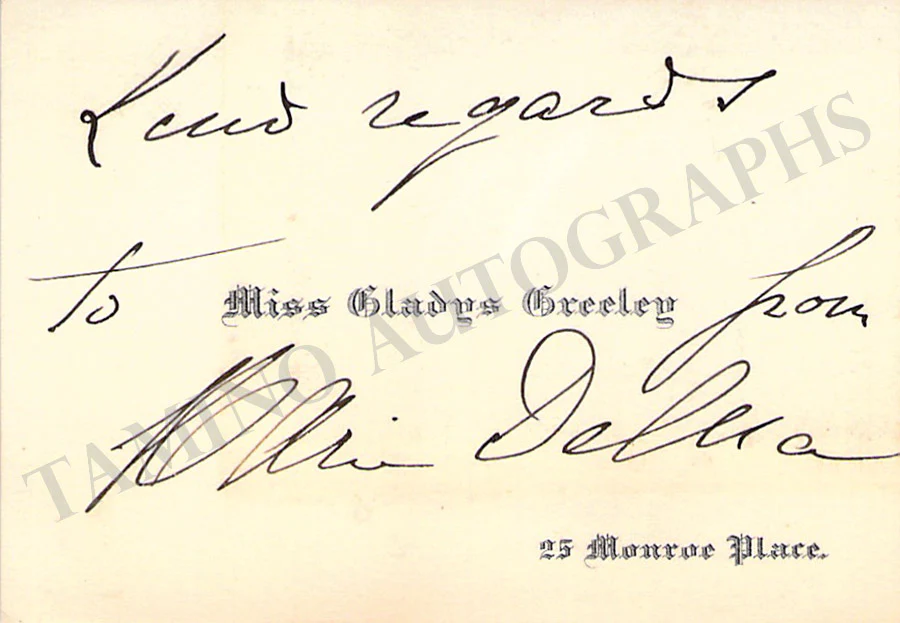 Kind regards
to Miss Gladys Greeley from
25 Monroe Place.
TAMINO AUTOGRAPHS